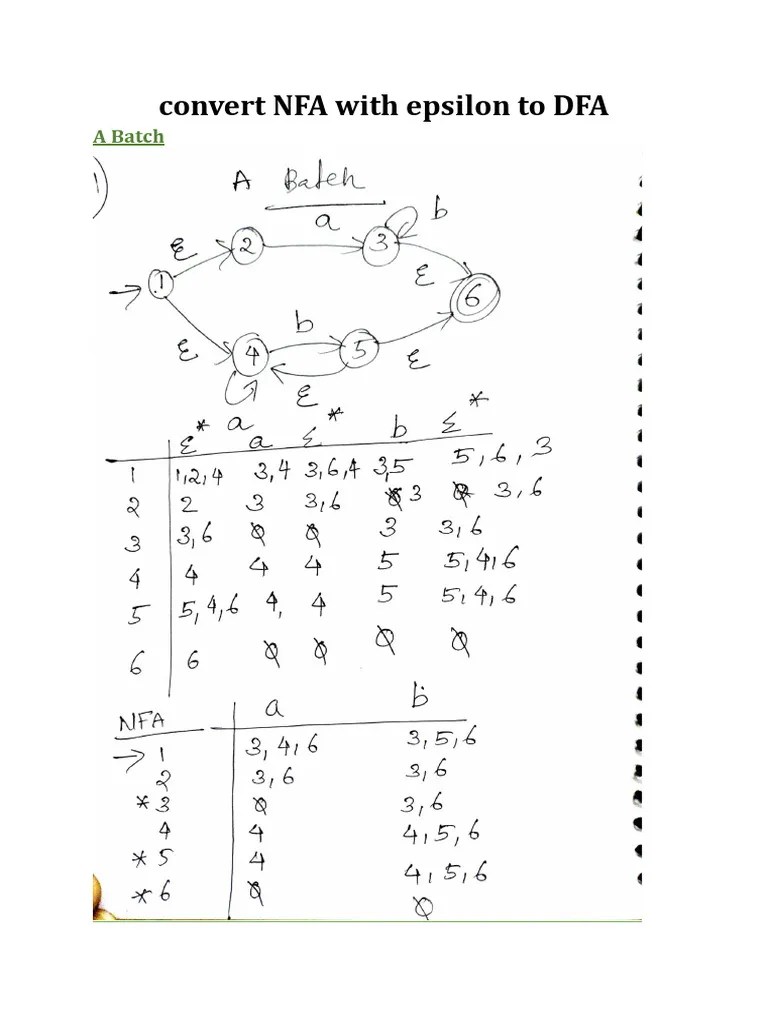 convert NFA with epsilon to DFA
A Batch
1)
A Batch
a
b
ε
2
3
1
ε
6
ε
b
4
5
ε
ε
a
ε* a ε* b ε*
1 1,2,4 3,4 3,6,4 3,5 5,6,3
2 2 3 3,6 3 3,6
3 3,6 Φ Φ 3 3,6
4 4 4 4 5 5,4,6
5 5,4,6 4, 4 5 5,4,6
6 6 Φ Φ Φ Φ
NFA a b
→ 1 3,4,6 3,5,6
2 3,6 3,6
*3 Φ 3,6
4 4 4,5,6
*5 4 4,5,6
*6 Φ Φ